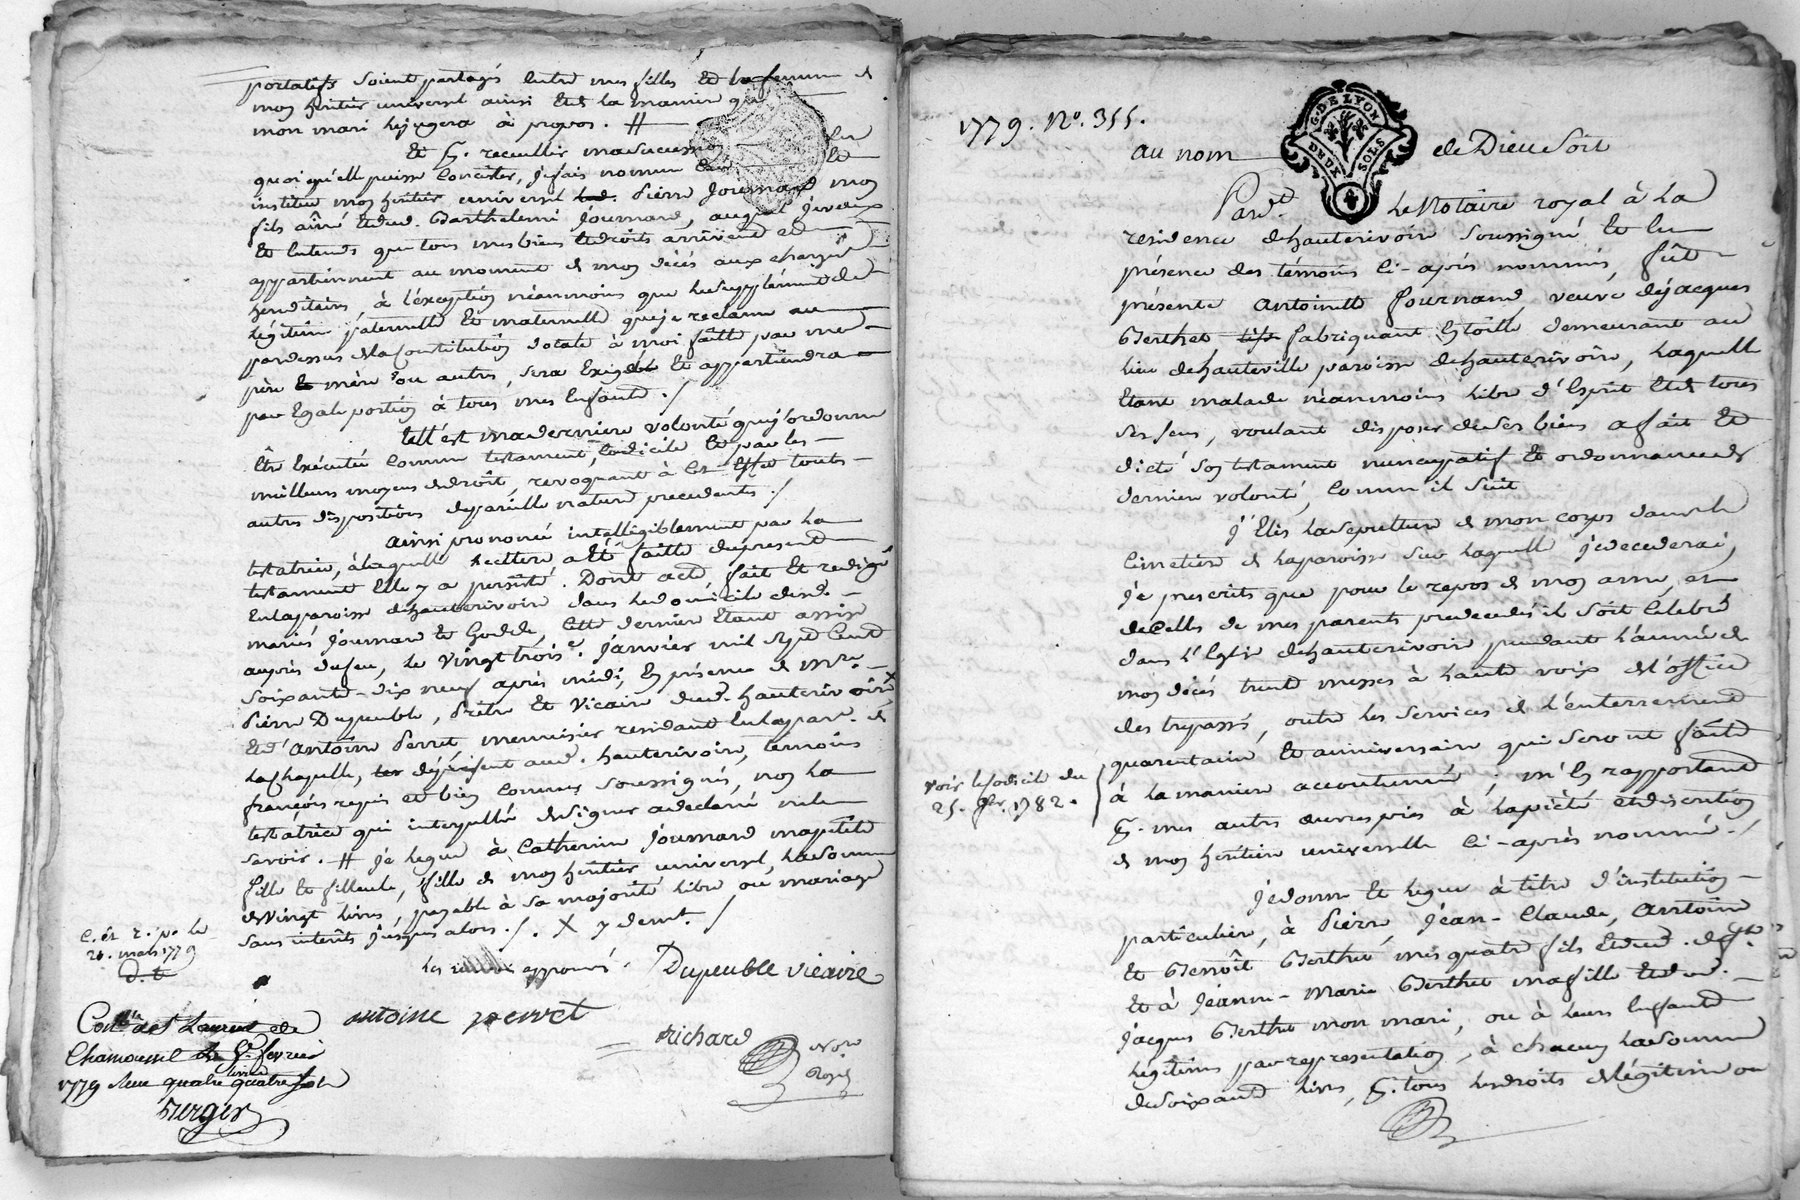 portatifs soient partagés entre mes filles et la femme de
mon héritier universel ainsi et de la maniere que
mon mari le jugera à propos. //
Et qt. recueillir ma succession
quoi qu'elle puisse consister, je fais nomme et
institue mon héritier universel led. Pierre Journard mon
fils aîné et dud. Barthelemi Journard, auquel je veux
et entends que tous mes biens et droits arrivent et
appartiennent au moment de mon décés aux charges
héréditaires, à l'exception néanmoins que le supplément de
légitime paternelle et maternelle que je reclame au
pardessus de la constitution dotale à moi faitte par me
père et mère ou autres, sera exigible et appartiendra
par egale portion à tous mes enfants ./
telle est ma derniere volonté que j'ordonne
être exécutée comme testament, codicile et par les
meilleurs moyens de droit, revoquant à cet effet toutes
autres dispositions de pareille nature precedentes ./
ainsi prononcé intelligiblement par la
testatrice, à laquelle lecture a été faitte du present
testament elle y a persisté. Dont acte, fait et redigé
en la paroisse d'hauterivoire dans le domicile desd.
mariés Journard et Godde, cette derniere étant assise
auprès du feu, le vingt trois e. janvier mil sept cent
soixante-dix neuf après midi, en présence de mre.
Pierre Dupeuble, Prêtre et Vicaire dud. hauterivoire X
et d'Antoine Perret, menuisier residant en la par. de
la Chapelle, de présent aud. hauterivoire, temoins
françois requis et bien connus soussignés, non la
testatrice qui interpellée de signer a declaré ne le
savoir. // je legue à Catherine Journard ma petite
fille et filleule, fille de mon héritier universel, la somme
de vingt livres, payable à sa majorité libre ou mariage
sans interêts jusques alors ./. X y demt. /
les approuvé. Dupeuble vicaire
C. ét r. p. le
21. mars 1779
antoine perret
richard
Nore
Royal
Con.
Chamousset le fevrier
1779 Reçu quatre livres quatre sols
Berger
1779. No. 355.
G. DE LYON
DEUX SOLS
au nom de Dieu soit
Pardt. le Notaire royal à la
residence d'hauterivoire soussigné et en
présence des témoins ci-après nommés, fût
présente Antoinette Journard, veuve de Jacques
Berthet fabriquant en toille demeurant au
lieu de hauteville paroisse d'hauterivoire, laquelle
étant malade néanmoins libre d'esprit et de tous
ses sens, voulant disposer de ses biens a fait et
dicté son testament nuncupatif et ordonnance de
derniere volonté, comme il suit
j'Elis la sepulture de mon corps dans le
cimetiere de la paroisse sur laquelle je decederai,
je prescrits que pour le repos de mon ame, et
de celles de mes parents predecedés il soit celebré
dans l'Eglise d'hauterivoire pendant l'année de
mon décés trente messes à haute voix de l'office
des trepassés, outre les services de l'enterrement
quarantaine et anniversaire qui seront faits
à la maniere accoutumée; m'en rapportant
qt. mes autres oeuvres pies à la piété et discretion
de mon héritiere universelle ci-après nommée ./
voir le codicile du
25. 9br. 1782.
je donne et legue à titre d'institution
particuliere, à Pierre, Jean-Claude, Antoine
et Benoît Berthet mes quatre fils et dud. deft.
et à Jeanne-Marie Berthet ma fille et dud.
Jacques Berthet mon mari, ou à leurs enfants
legitimes par representation, à chacun la somme
de soixante livres, pr. tous les droits de légitime ou